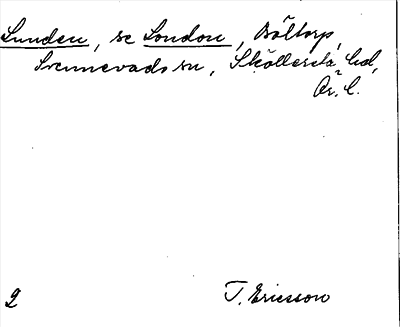 Lunden, se London, Bältorp,
Svennevads sn, Sköllersta hd,
Ör. l.
2 T. Ericsson